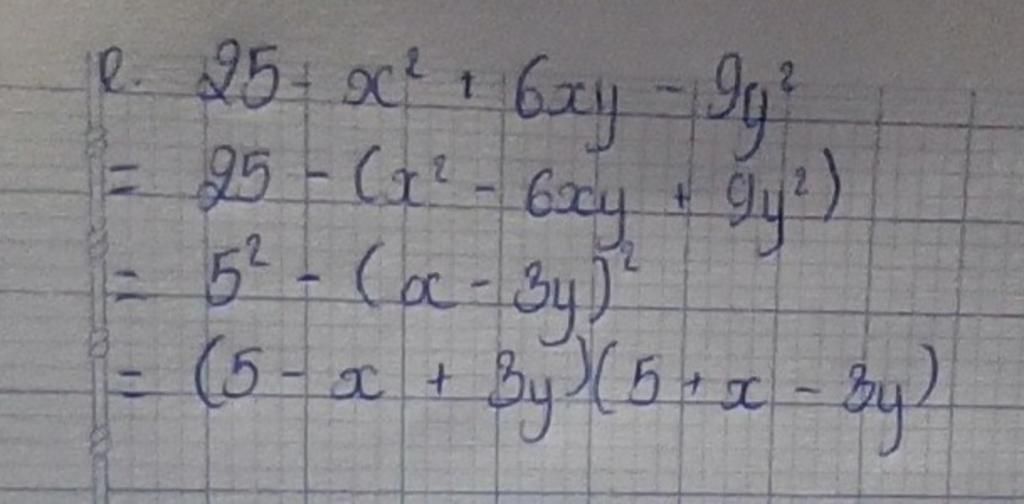 e. 25 - x² + 6xy - 9y²
= 25 - (x² - 6xy + 9y²)
= 5² - (x - 3y)²
= (5 - x + 3y)(5 + x - 3y)